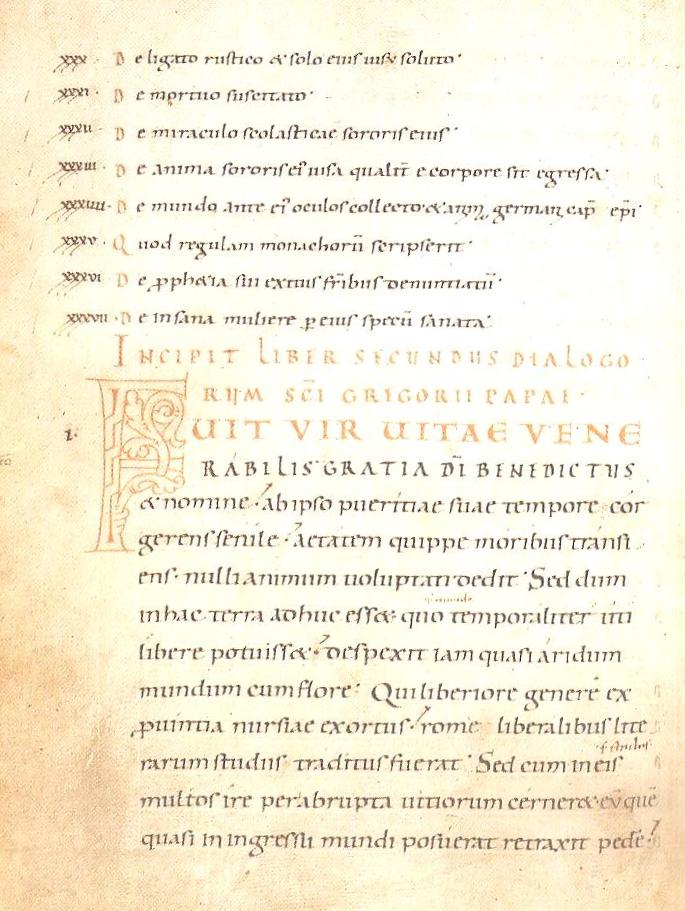 xxx · De ligato rustico & solo eius uisu soluto·
xxxi · De mortuo suscitato·
xxxii · De miraculo scolasticae sororis eius·
xxxiii · De anima sororis ei' uisa qualit̄ e corpore sit egressa·
xxxiiii · De mundo ante ei' oculos collecto· & german cap̄ ep̄i·
xxxv · Quod regulam monachorū scripserit·
xxxvi · De prophetia sui exitus fr̄ibus denuntiatū·
xxxvii · De insana muliere p eius specū sanata·
INCIPIT LIBER SECUNDUS DIALOGO
RUM SC̄I GRIGORII PAPAE·
i· FUIT VIR UITAE VENE
RABILIS· GRATIA DI BENEDICTUS
& nomine· ab ipso pueritiae suae tempore cor
gerens senile· aetatem quippe moribus transi
ens· nulli animum uoluptati dedit· Sed dum
in hac terra adhuc ess& quo temporaliter uti
libere potuiss&· despexit iam quasi aridum
mundum cum flore· Qui liberiore genere ex
puintia nursiae exortus· rome liberalibus litte
rarum studiis traditus fuerat· Sed cum in eis
multos ire per abrupta uitiorum cerner&· eū quē
quasi in ingressu mundi posuerat retraxit pedē·